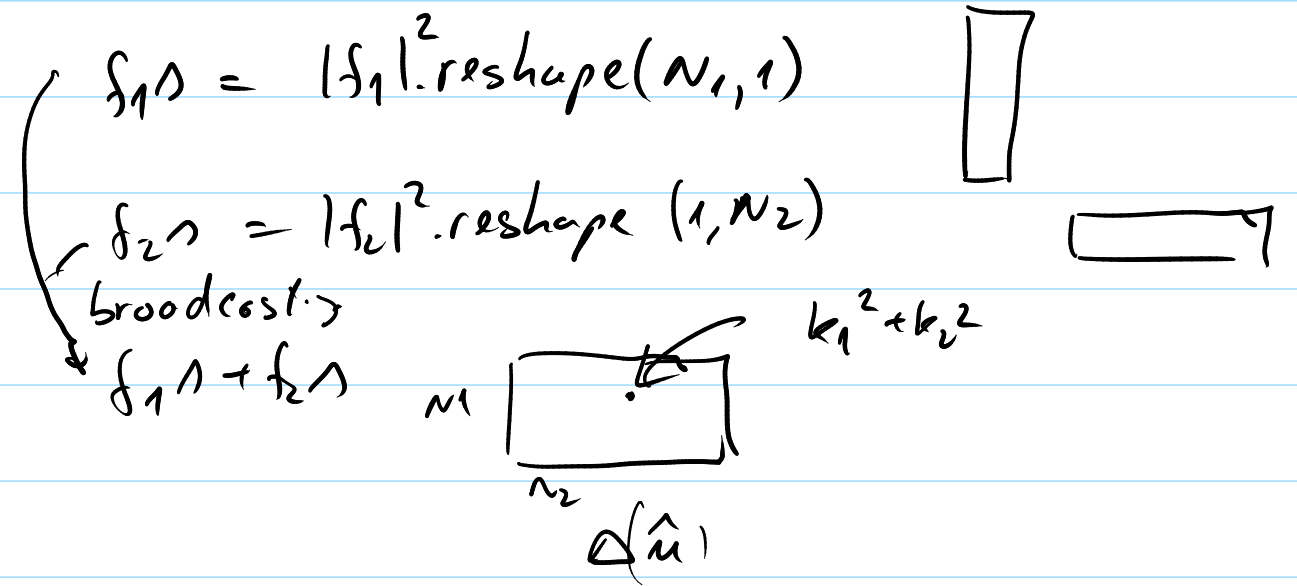 f₁s = |f₁|².reshape(N₁,1)
f₂s = |f₂|².reshape (1,N₂)
broadcast.
f₁s + f₂s
k₁²+k₂²
N1
N₂
Δ(û)